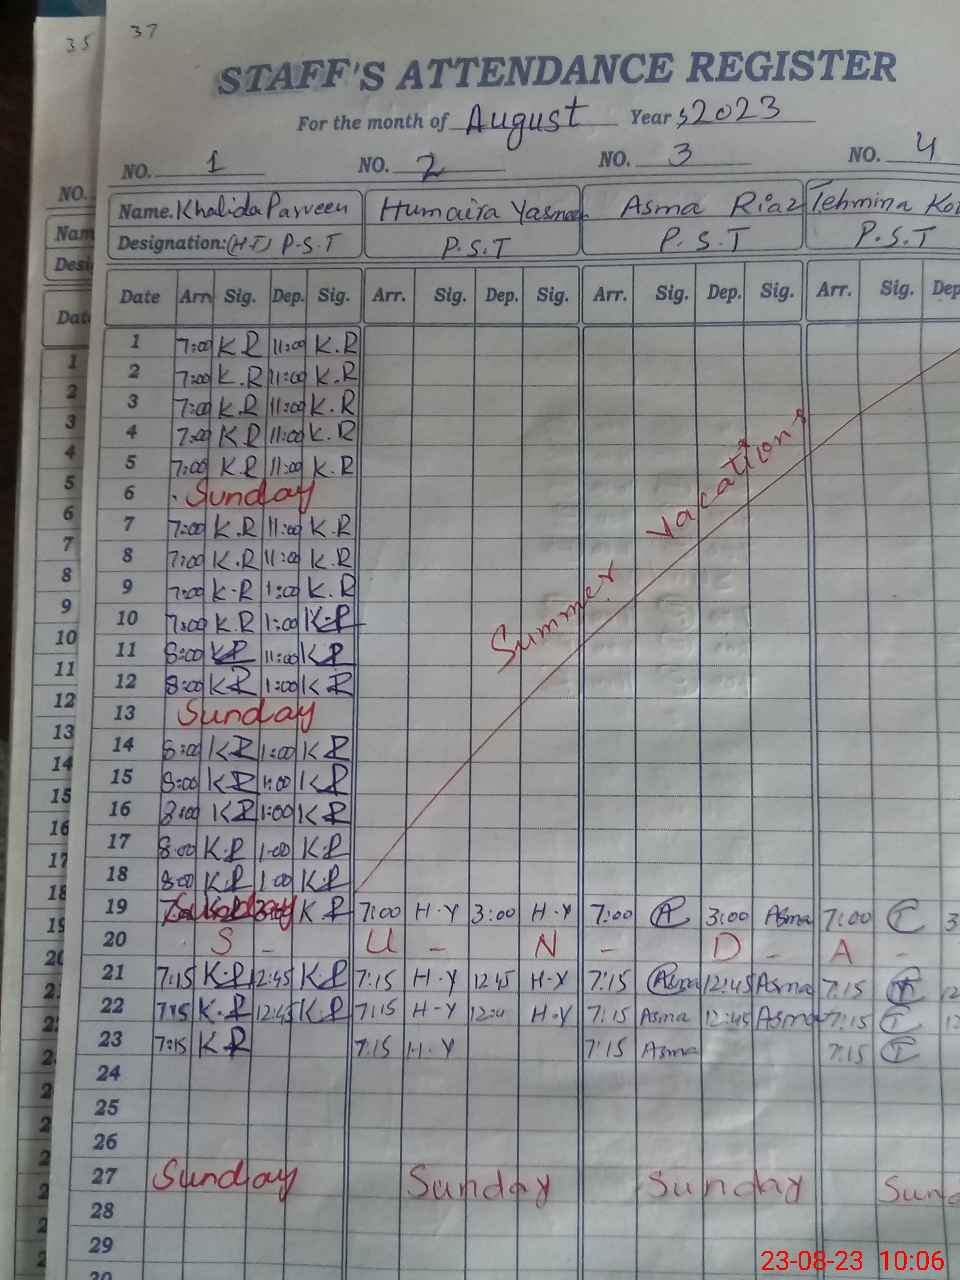 35
37
STAFF'S ATTENDANCE REGISTER
For the month of August Year 2023
NO. 1 NO. 2 NO. 3 NO. 4
NO.
Name. Khalida Parveen Humaira Asma Riaz Tehmina
Nam
Designation: (H.T) P.S.T P.S.T P.S.T P.S.T
Desi
Date Arr Sig. Dep. Sig. Arr. Sig. Dep. Sig. Arr. Sig. Dep. Sig. Arr. Sig. Dep
Dat
1 7:00 K.R 11:00 K.R
2 7:00 K.R 11:00 K.R
3 7:00 K.R 11:00 K.R
4 7:00 K.R 11:00 K.R
5 7:00 K.R 11:00 K.R
6 Sunday
7 7:00 K.R 11:00 K.R
8 7:00 K.R 11:00 K.R
9 7:00 K.R 1:00 K.R
10 7:00 K.R 1:00 K.R
11 8:00 K.R 11:00 K.R
12 8:00 K.R 1:00 K.R
13 Sunday
14 8:00 K.R 1:00 K.R
15 8:00 K.R 1:00 K.R
16 8:00 K.R 1:00 K.R
17 8:00 K.R 1:00 K.R
18 8:00 K.R 1:00 K.R
Summer Vacations
19 Sunday K.R 7:00 H.Y 3:00 H.Y 7:00 A 3:00 Asma 7:00 T 3
20 S - U - N - D - A -
21 7:15 K.R 12:45 K.R 7:15 H-Y 12:45 H-Y 7:15 Asma 12:45 Asma 7:15 T 12
22 7:15 K.R 12:45 K.R 7:15 H-Y 12:4 H-Y 7:15 Asma 12:45 Asma 7:15 T 12
23 7:15 K.R 7:15 H-Y 7:15 Asma 7:15 T
24
25
26
27 Sunday Sunday Sunday Sund
28
29
30
23-08-23 10:06